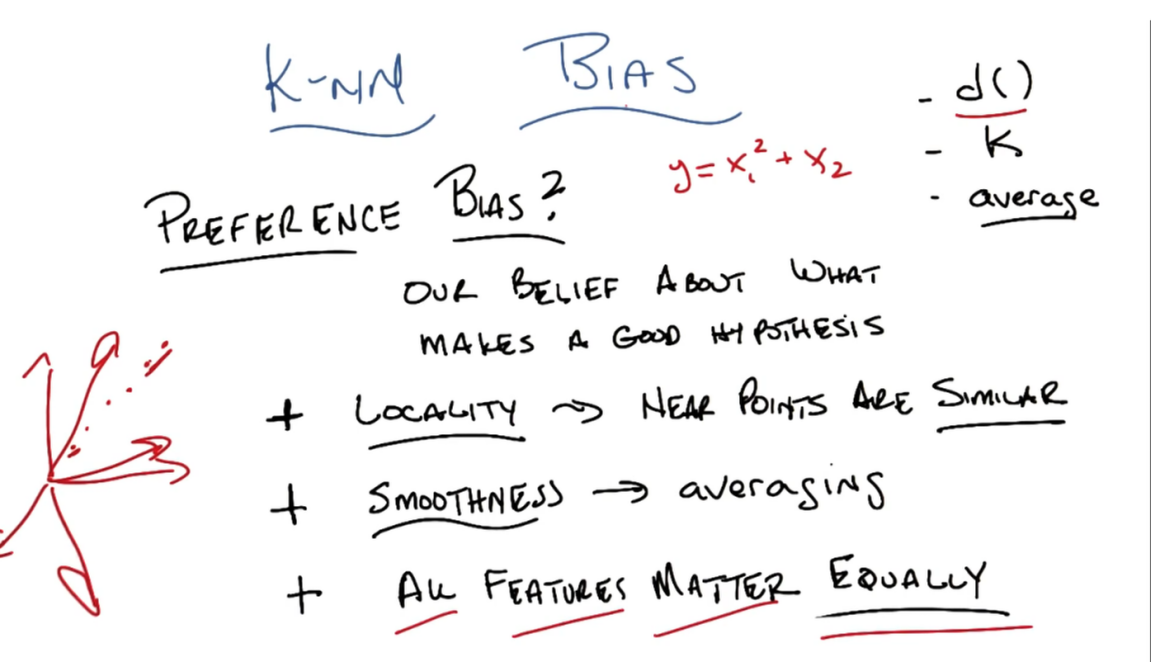 K-NN BIAS
- d()
- K
- average
y = x₁² + x₂
PREFERENCE BIAS?
OUR BELIEF ABOUT WHAT
MAKES A GOOD HYPOTHESIS
+ LOCALITY → NEAR POINTS ARE SIMILAR
+ SMOOTHNESS → averaging
+ ALL FEATURES MATTER EQUALLY